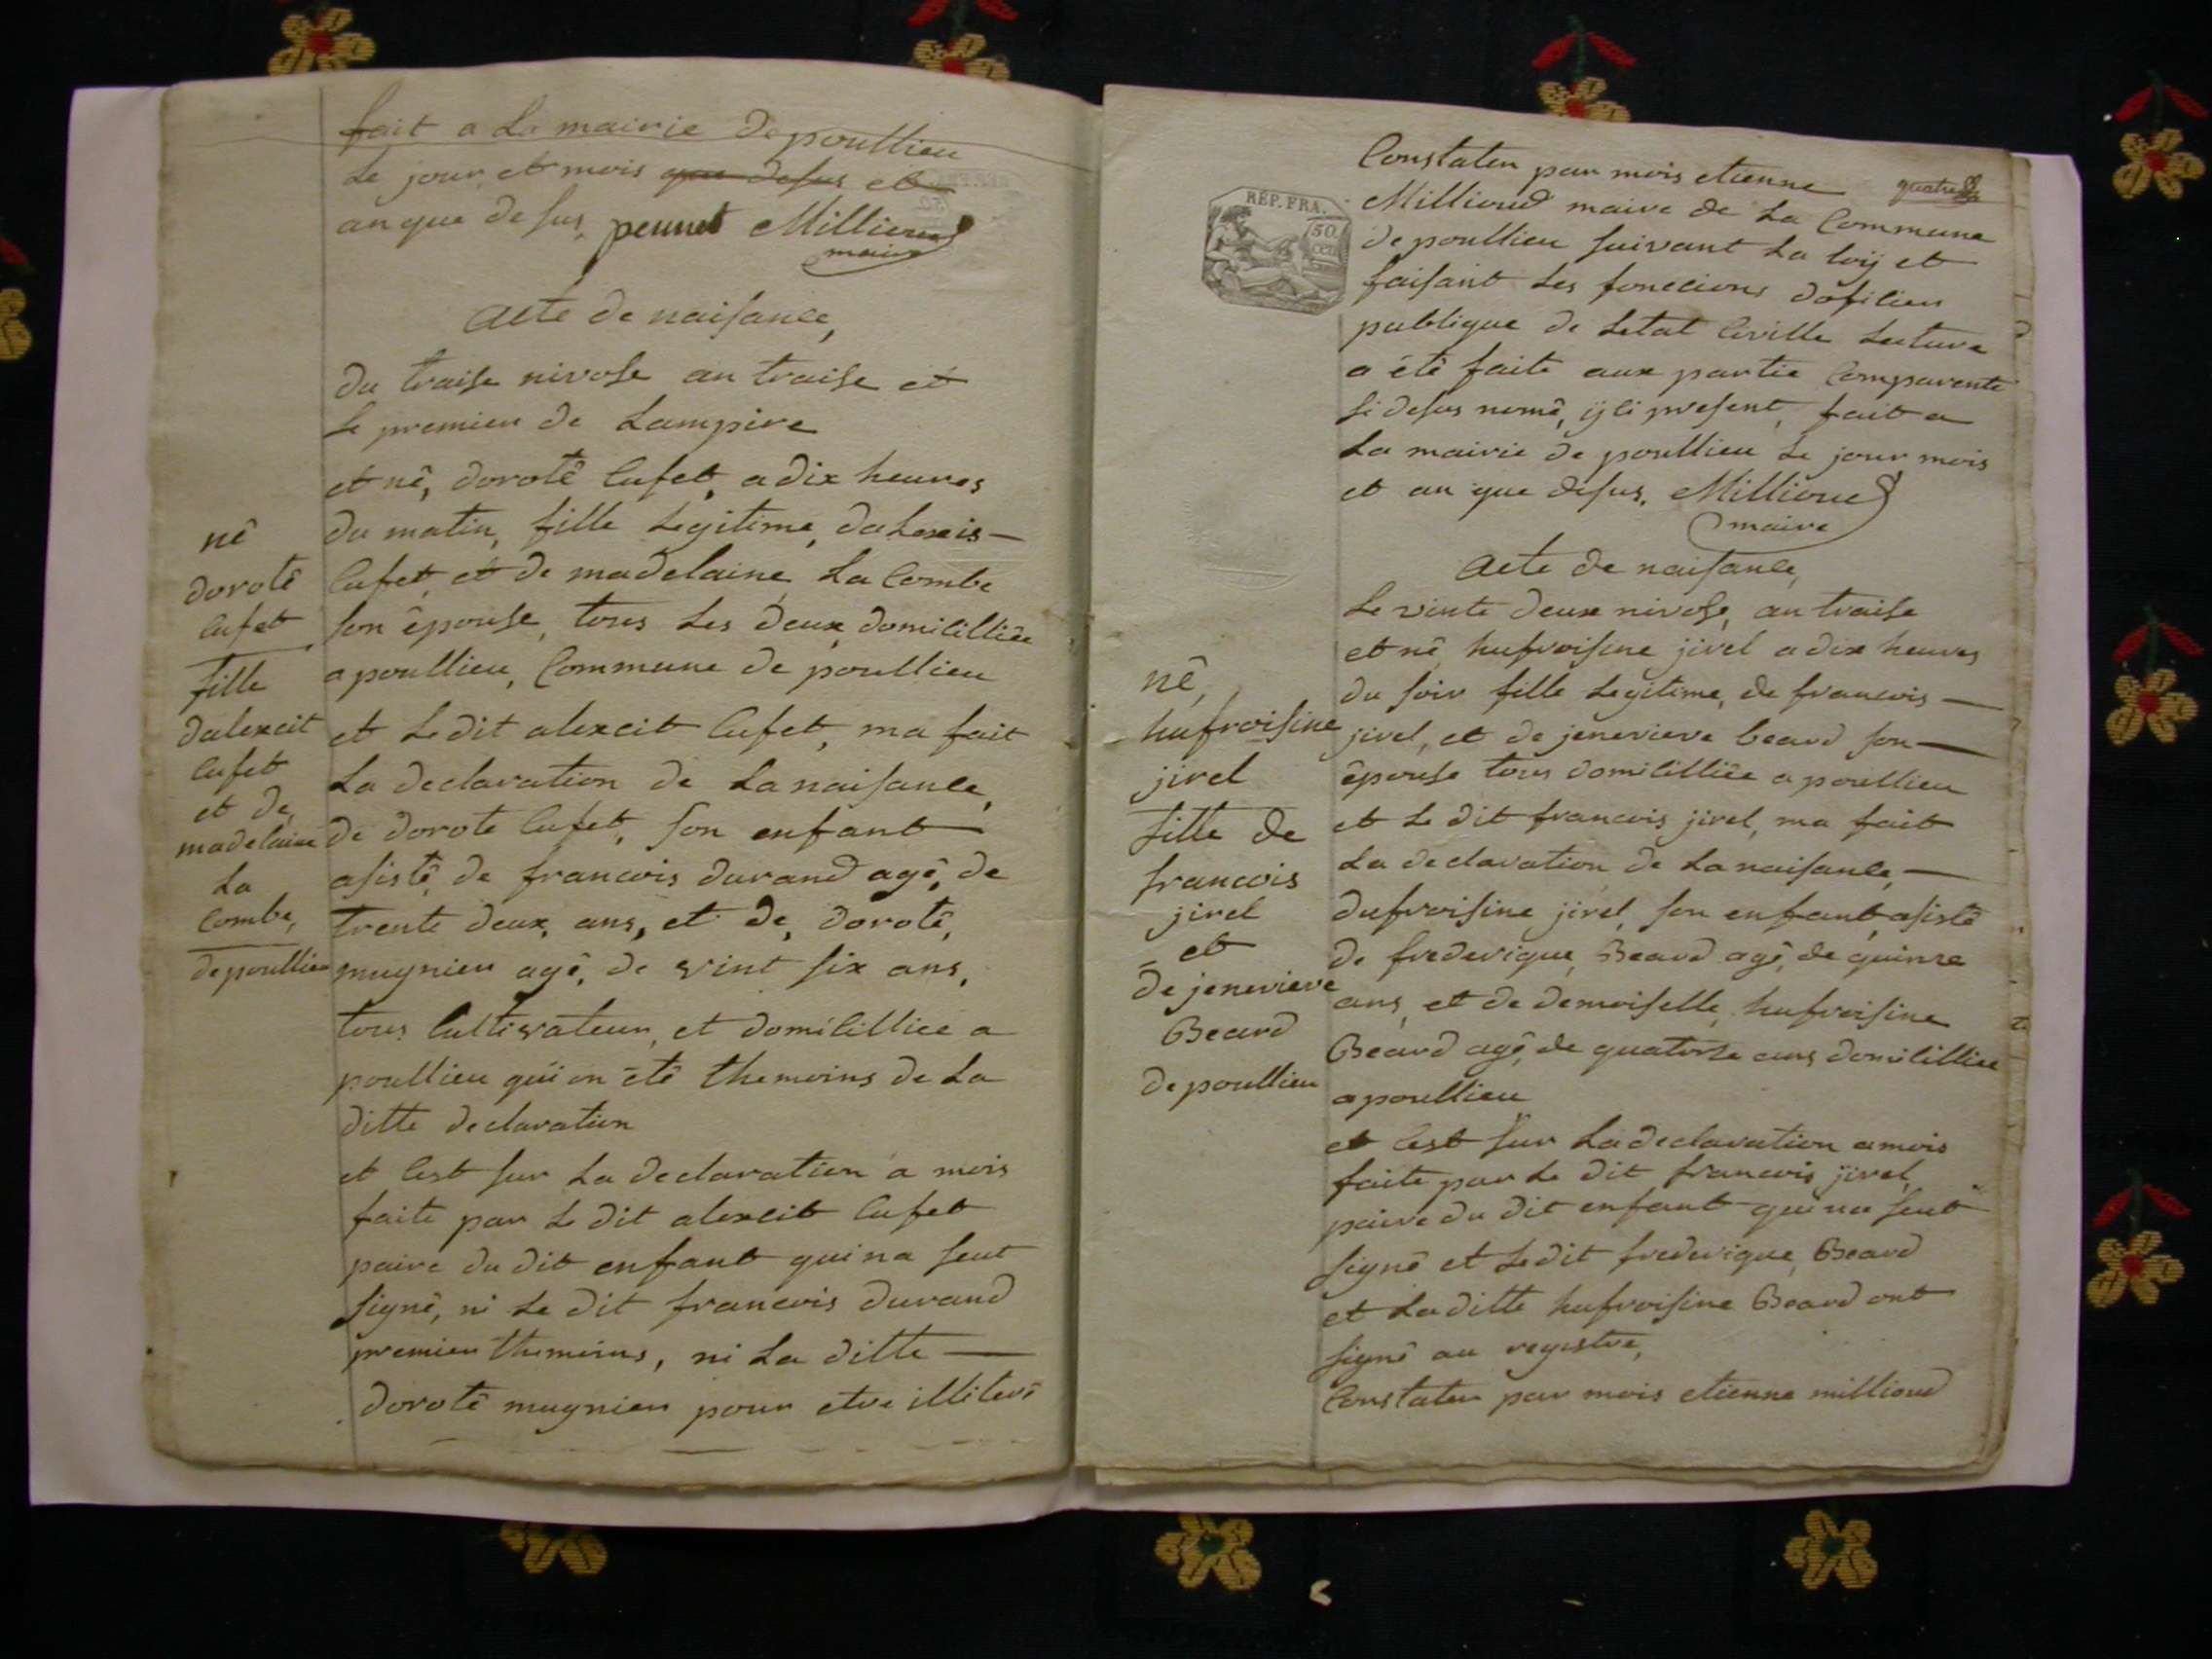 fait a La mairie de poullieu
Le jour et mois que desus et
an que desus, pennet Millioud
maire
Acte de naisance,
du traise nivose an traise et
Le premier de Lampire
et né, doroté Cufet, a dix heures
du matin, fille Legitime, daLexis
Cufet, et de madelaine La Combe
son épouse, tous Les deux domicilliée
a poullieu, Commune de poullieu
et Ledit alexcit Cufet, ma fait
La declaration de La naisance,
de doroté Cufet, son enfant
asisté, de francois durand agé, de
trente deux, ans, et de, doroté,
mugnier agé, de vint six ans,
tous Cultivateur, et domicilliée a
poullieu qui on été themoins de La
ditte declaration
et Cest sur La declaration a mois
faite par Le dit alexcit Cufet
paire du dit enfant qui na seut
signé, ni Le dit francois durand
premier themoins, ni La ditte
doroté mugnier pour etre illiteré
né
doroté
Cufet
fille
dalexcit
Cufet
et de
madelaine
La
Combe,
de poullieu
quatre
RÉP. FRA.
50
CEN
Constater par mois etienne
Millioud maire de La Commune
de poullieu suivant La loÿ et
faisant Les foncions doficier
publique de Letat Civille Lecture
a été faite aux partie Comparente
si desus nomé, ÿci present, fait a
La mairie de poullieu Le jour mois
et an que desus. Millioud
maire
Acte de naisance,
Le vinte deux nivose, an traise
et né hufroisine jirel a dix heures
du soir fille Legitime, de francois
jirel, et de jenevieve beard son
épouse tous domicilliée a poullieu
et Le dit francois jirel, ma fait
La declaration de La naisance,
dufroisine jirel, son enfant, asisté
de frederique, Beard agé, de quinze
ans, et de demoiselle, hufroisine
Beard agé, de quatorze ans domicilliée
a poullieu
et Cest sur La declaration a mois
faite par Le dit francois jirel,
paire du dit enfant qui na seut
signé et Ledit frederique, Beard
et La ditte hufroisine Beard ont
signé au registre,
Constater par mois etienne millioud
né,
hufroisine
jirel
fille de
francois
jirel
et
de jenevieve
Beard
de poullieu